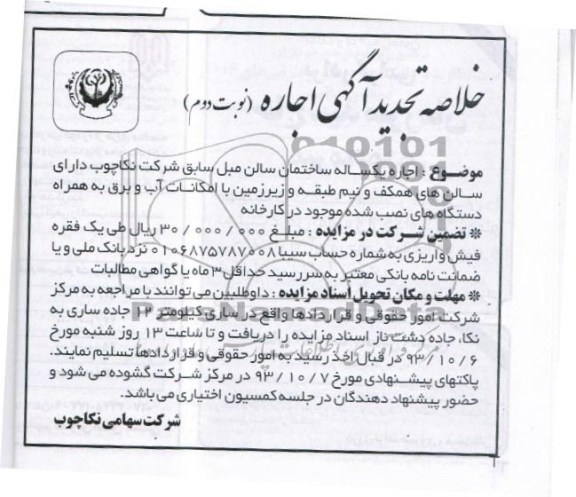 خلاصه تجدید آگهی اجاره (نوبت دوم)
موضوع : اجاره یکساله ساختمان سالن مبل سابق شرکت نکاچوب دارای
سالن های همکف و نیم طبقه و زیرزمین با امکانات آب و برق به همراه
دستگاه های نصب شده موجود در کارخانه
* تضمین شرکت در مزایده : مبلغ ۳۰/۰۰۰/۰۰۰ ریال طی یک فقره
فیش واریزی به شماره حساب سیبا ۰۱۰۶۸۷۵۷۸۷۰۰۸ نزد بانک ملی و یا
ضمانت نامه بانکی معتبر به سررسید حداقل ۳ ماه یا گواهی مطالبات
* مهلت و مکان تحویل اسناد مزایده : داوطلبین می توانند با مراجعه به مرکز
شرکت امور حقوقی و قراردادها واقع در ساری کیلومتر ۱۲ جاده ساری به
نکا، جاده دشت ناز اسناد مزایده را دریافت و تا ساعت ۱۳ روز شنبه مورخ
۹۳/۱۰/۶ در قبال اخذ رسید به امور حقوقی و قراردادها تسلیم نمایند.
پاکتهای پیشنهادی مورخ ۹۳/۱۰/۷ در مرکز شرکت گشوده می شود و
حضور پیشنهاد دهندگان در جلسه کمسیون اختیاری می باشد.
شرکت سهامی نکاچوب